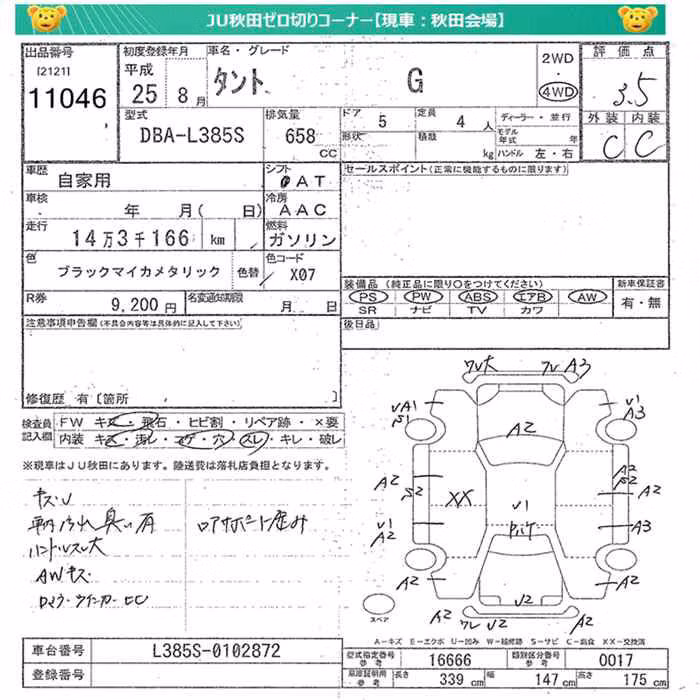 JU秋田ゼロ切りコーナー【現車：秋田会場】
出品番号 [2121] 11046
初度登録年月 平成 25年 8月
車名・グレード タント G
2WD 4WD
評価点 3.5
外装 内装
C C
型式 DBA-L385S
排気量 658 CC
ドア 5 形状
定員 4人 積載 kg
ディーラー・並行
モデル年式 年
ハンドル 左・右
車歴 自家用
シフト AT
セールスポイント(正常に機能するものに限ります)
車検 年 月( 日)
冷房 AAC
走行 14万3千166 km
燃料 ガソリン
色 ブラックマイカメタリック 色替
色コード X07
装備品 (純正品に限り○をつけてください)
新車保証書 有・無
PS PW ABS エアB AW
SR ナビ TV カワ
R券 9,200円
名変通知期限 月 日
後日品
注意事項申告欄(不具合内容等は具体的に記入して下さい)
修復歴 有〔箇所 〕
検査員記入欄
FW キズ・飛石・ヒビ割・リペア跡・×要
内装 キズ・汚レ・コゲ・穴・スレ・キレ・破レ
※現車はJU秋田にあります。陸送費は落札店負担となります。
キズU
臭い有
ハンドルスレ大
AWキズ
ロアサポート歪み
A2
XX
U1
U2
A3
スペア
A-キズ E-エクボ U-凹み W-補修跡 S-サビ C-腐食 XX-交換済
車台番号 L385S-0102872
登録番号
型式指定番号 参考 16666
類別区分番号 参考 0017
車庫証明用 参考 長さ 339 cm 幅 147 cm 高さ 175 cm